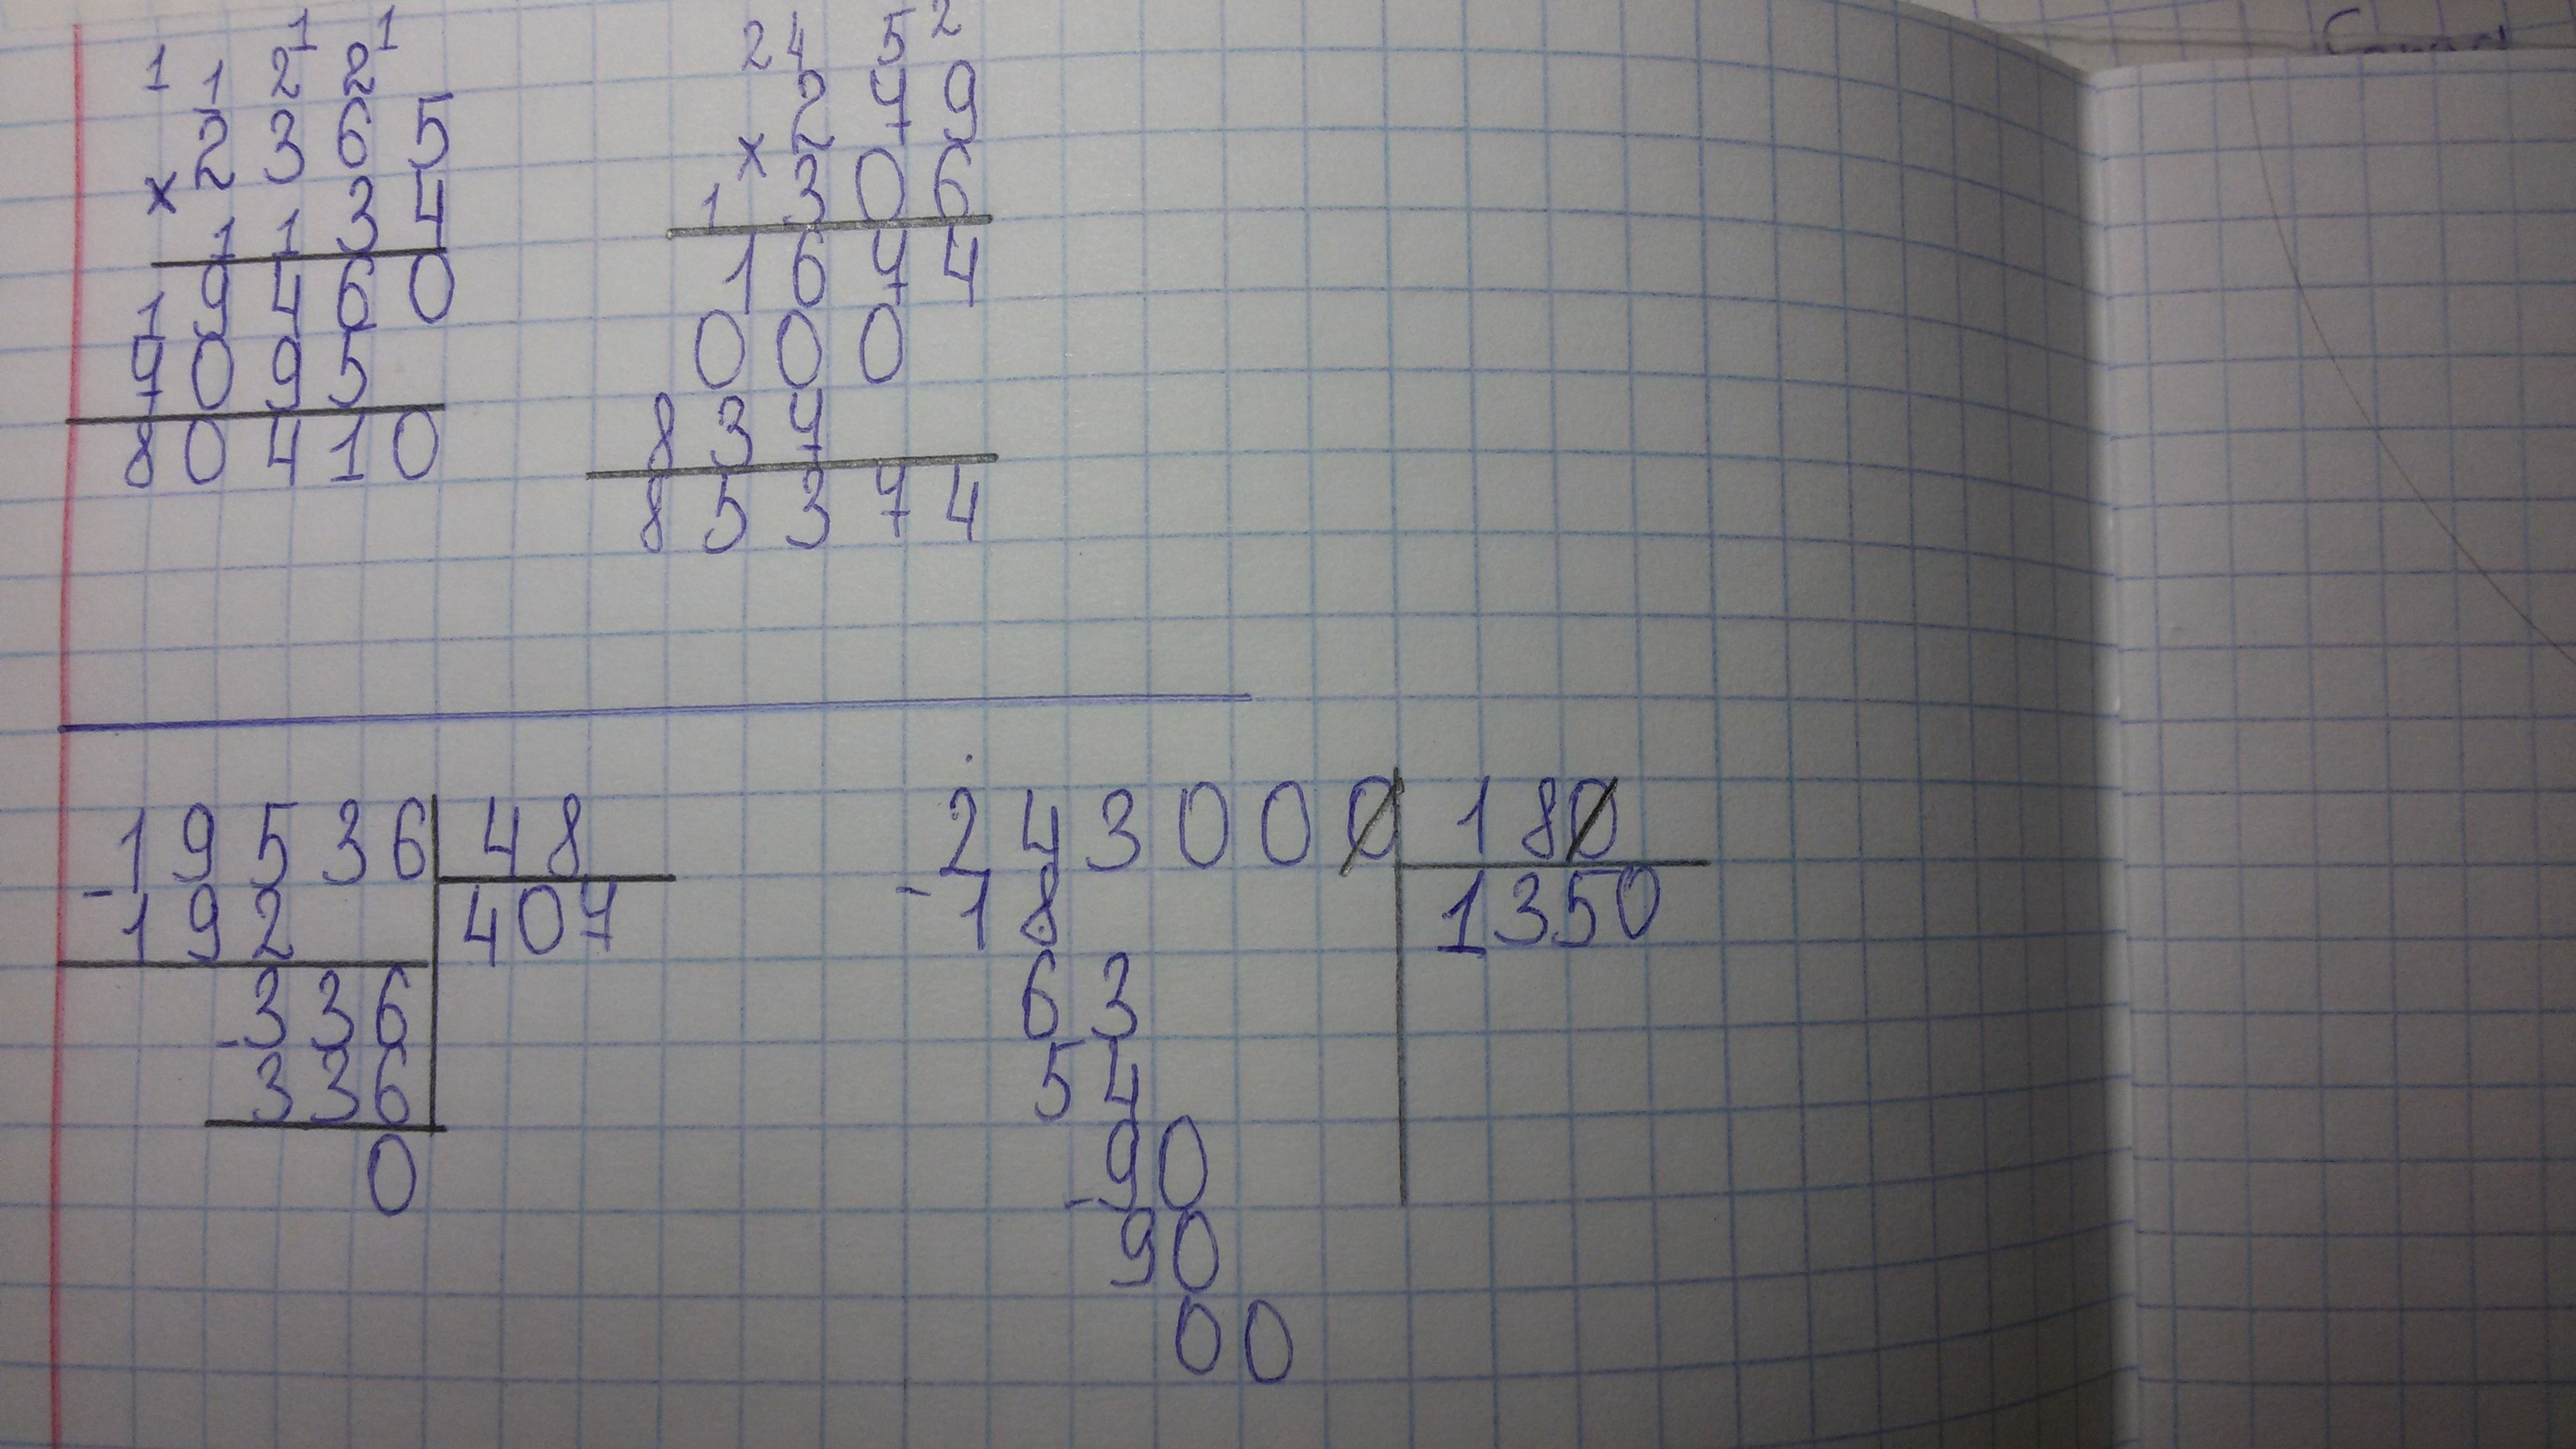 1 1 2 1 2 1
2 3 6 5
× 3 4
1 1
9 4 6 0
1
7 0 9 5
8 0 4 1 0
2 4 5 2
2 7 9
× 3 0 6
1
1 6 7 4
0 0 0
8 3 7
8 5 3 7 4
1 9 5 3 6 4 8
- 1 9 2 4 0 7
- 3 3 6
3 3 6
0
2 4 3 0 0 0 1 8 0
- 1 8 1 3 5 0
6 3
5 4
- 9 0
9 0
0 0